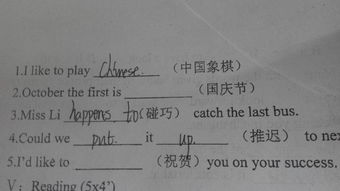 1.I like to play Chinese. （中国象棋）
2.October the first is ________ （国庆节）
3.Miss Li happens to(碰巧) catch the last bus.
4.Could we put it up. （推迟） to ne
5.I'd like to ________ （祝贺）you on your success.
V: Reading (5x4')